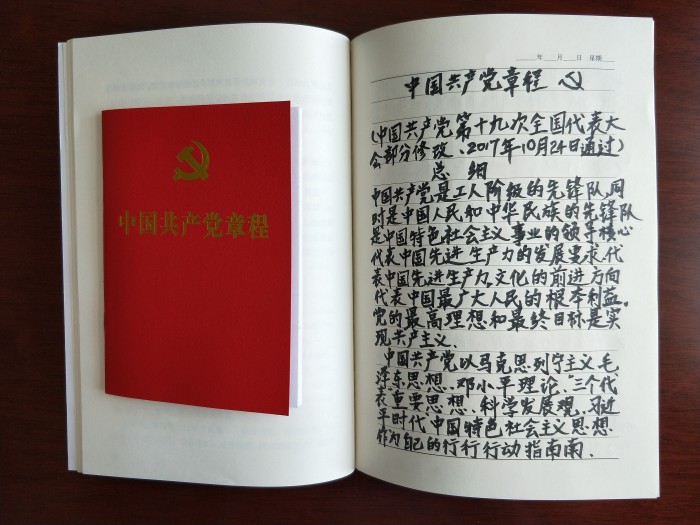 中国共产党章程
年 月 日 星期
中国共产党章程
(中国共产党第十九次全国代表大
会部分修改、2017年10月24日通过)
总 纲
中国共产党是工人阶级的先锋队,同
时是中国人民和中华民族的先锋队
是中国特色社会主义事业的领导核心
代表中国先进生产力的发展要求,代
表中国先进生产力,文化的前进方向
代表中国最广大人民的根本利益。
党的最高理想和最终目标是实
现共产主义.
中国共产党以马克思列宁主义毛
泽东思想、邓小平理论、“三个代
表重要思想、科学发展观、习近
平时代中国特色社会主义思想.
作为自己的行行行动指南南.